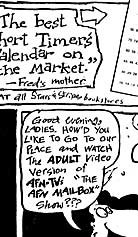 The best
hort Timers
alendar on
the Market.
—Fred's mother
AT all Stars & Stripes bookstores
Good evening,
LADIES. HOW'D YOU
LIKE TO GO TO OUR
PLACE AND WATCH
THE ADULT VIDEO
VERSION OF
AFN-TV: "THE
AFN MAIL-BOX"
SHOW???